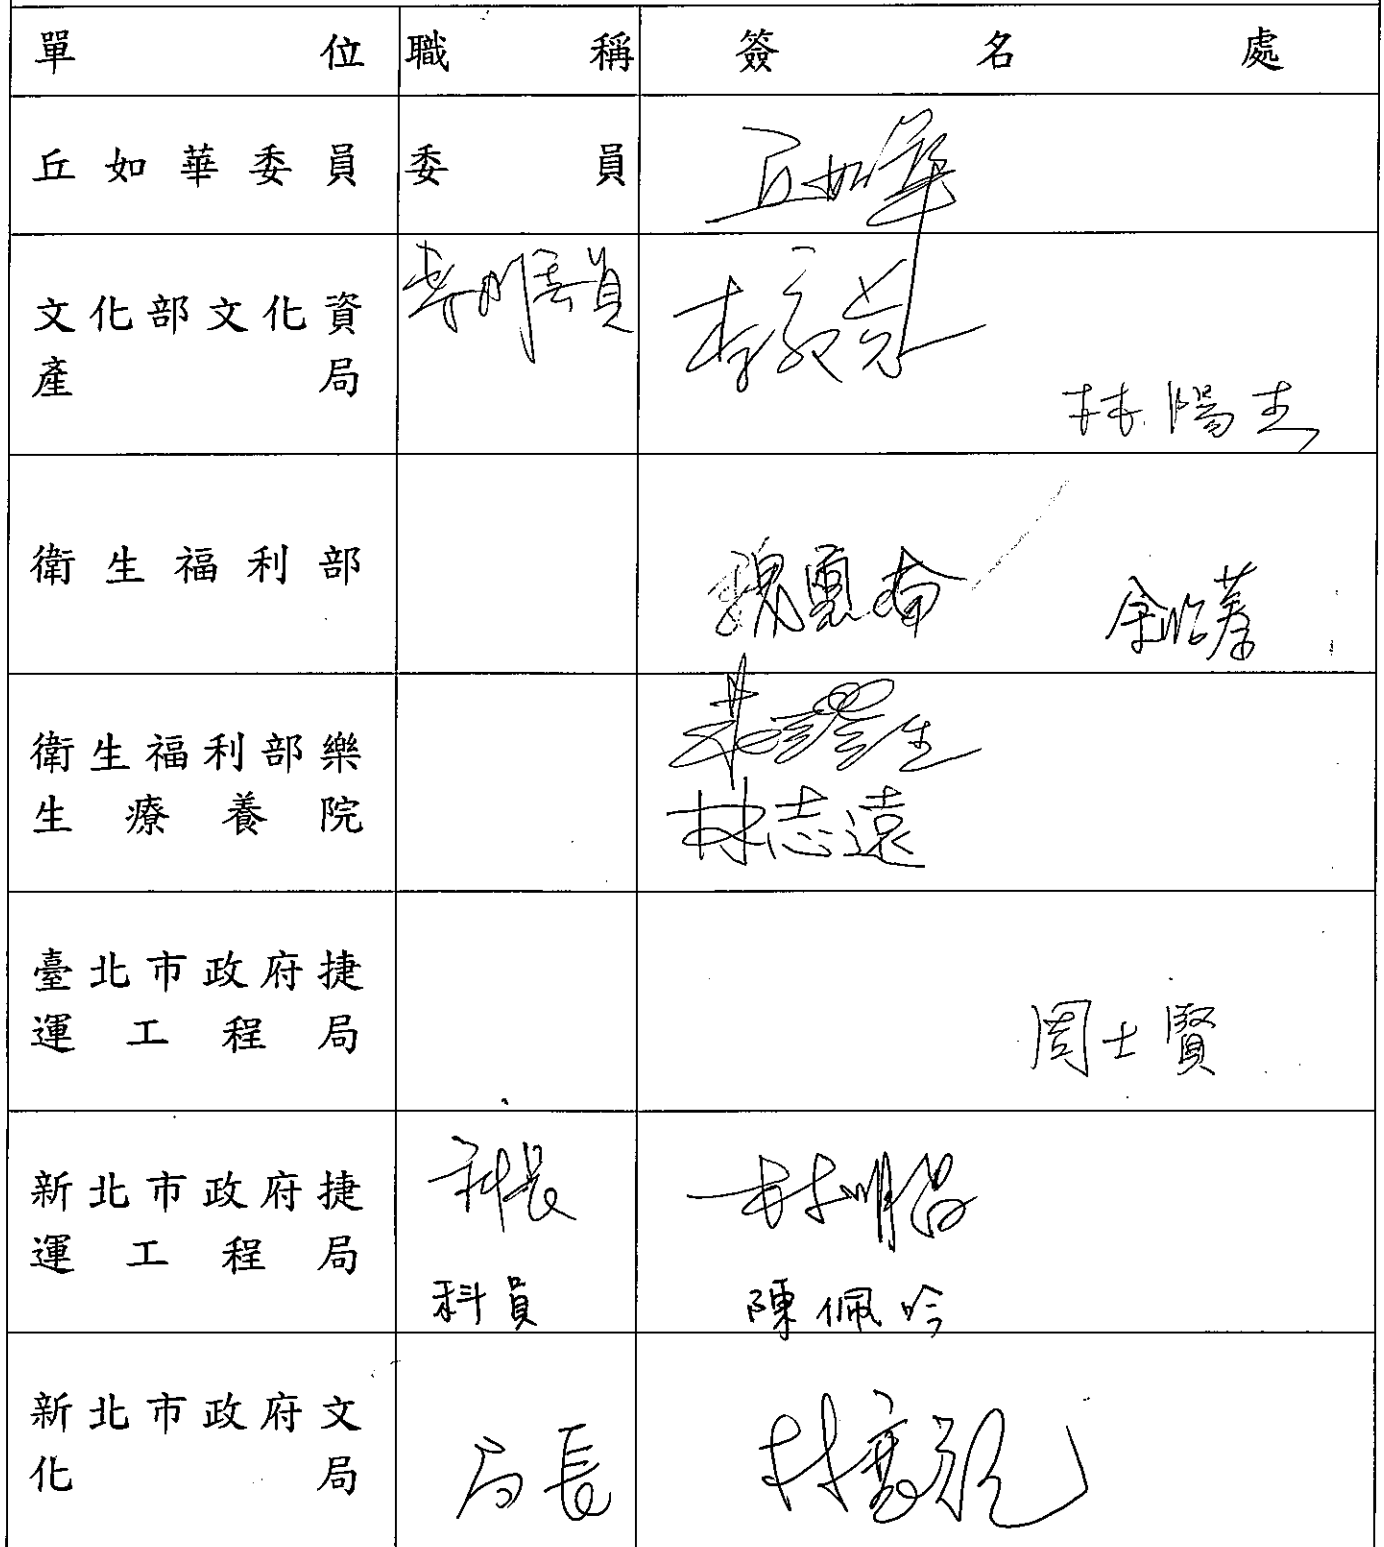 單位 職稱 簽名處
丘如華委員 委員 丘如華
文化部文化資產局 專門委員
林陽杰
衛生福利部 魏惠
衛生福利部樂生療養院
林志遠
臺北市政府捷運工程局 周士賢
新北市政府捷運工程局 科長 林明昭
科員 陳佩吟
新北市政府文化局 局長 林寬裕